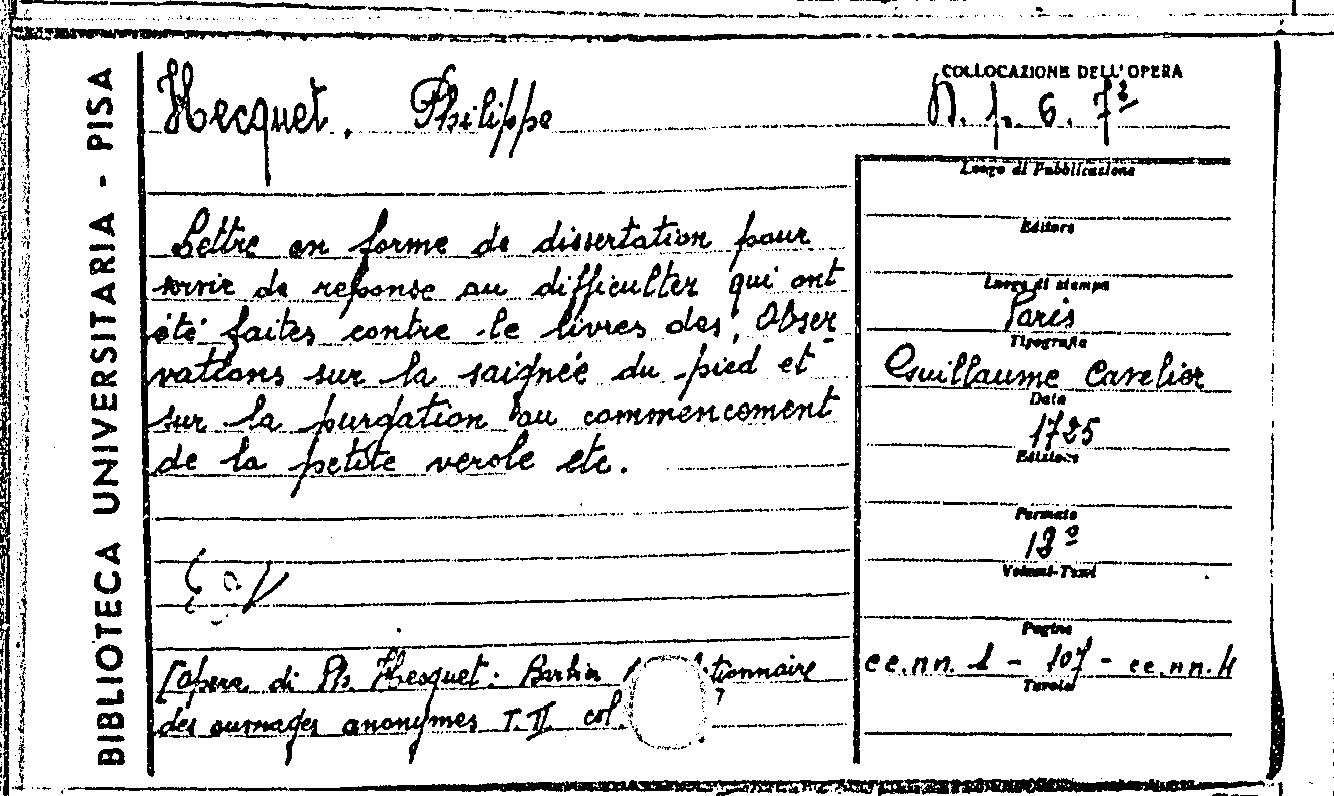 BIBLIOTECA UNIVERSITARIA - PISA
Hecquet, Philippe
COLLOCAZIONE DELL'OPERA
6. 7
Lettre en forme de dissertation pour
servir de reponse au difficulter qui ont
été faites contre le livres des Obser-
vations sur la saignée du pied et
sur la purgation au commencement
de la petite verole etc.
[opera di Ph. Hesquet: Barbier tionnaire
des ouvrages anonymes T. II col.
Luogo di Pubblicazione
Editore
Luogo di stampa
Paris
Tipografia
Guillaume Cavelier
Data
1725
Edizione
Formato
12º
Volumi-Tomi
Pagine
cc.nn. 1 - 107 - cc.nn. 4
Tavole